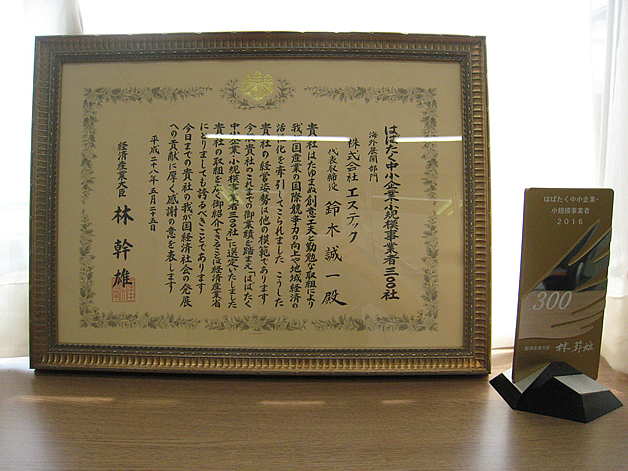 はばたく中小企業・小規模事業者三〇〇社
海外展開部門
株式会社 エステック
代表取締役 鈴木誠一殿
貴社はたゆまぬ創意工夫と勤勉な取組により
我が国産業の国際競争力の向上や地域経済の
活性化を牽引してこられました こうした
貴社の経営姿勢は他の模範であります
今般貴社のこれまでの御業績を踏まえ「はばたく
中小企業・小規模事業者三〇〇社」に選定いたしました
貴社の取組を広く御紹介できることは経済産業省
にとりましても誇るべきことであります
今日までの貴社の我が国経済社会の発展
への貢献に厚く感謝の意を表します
平成二十八年五月二十五日
経済産業大臣 林 幹雄
はばたく中小企業・
小規模事業者
2016
300
経済産業大臣 林 幹雄